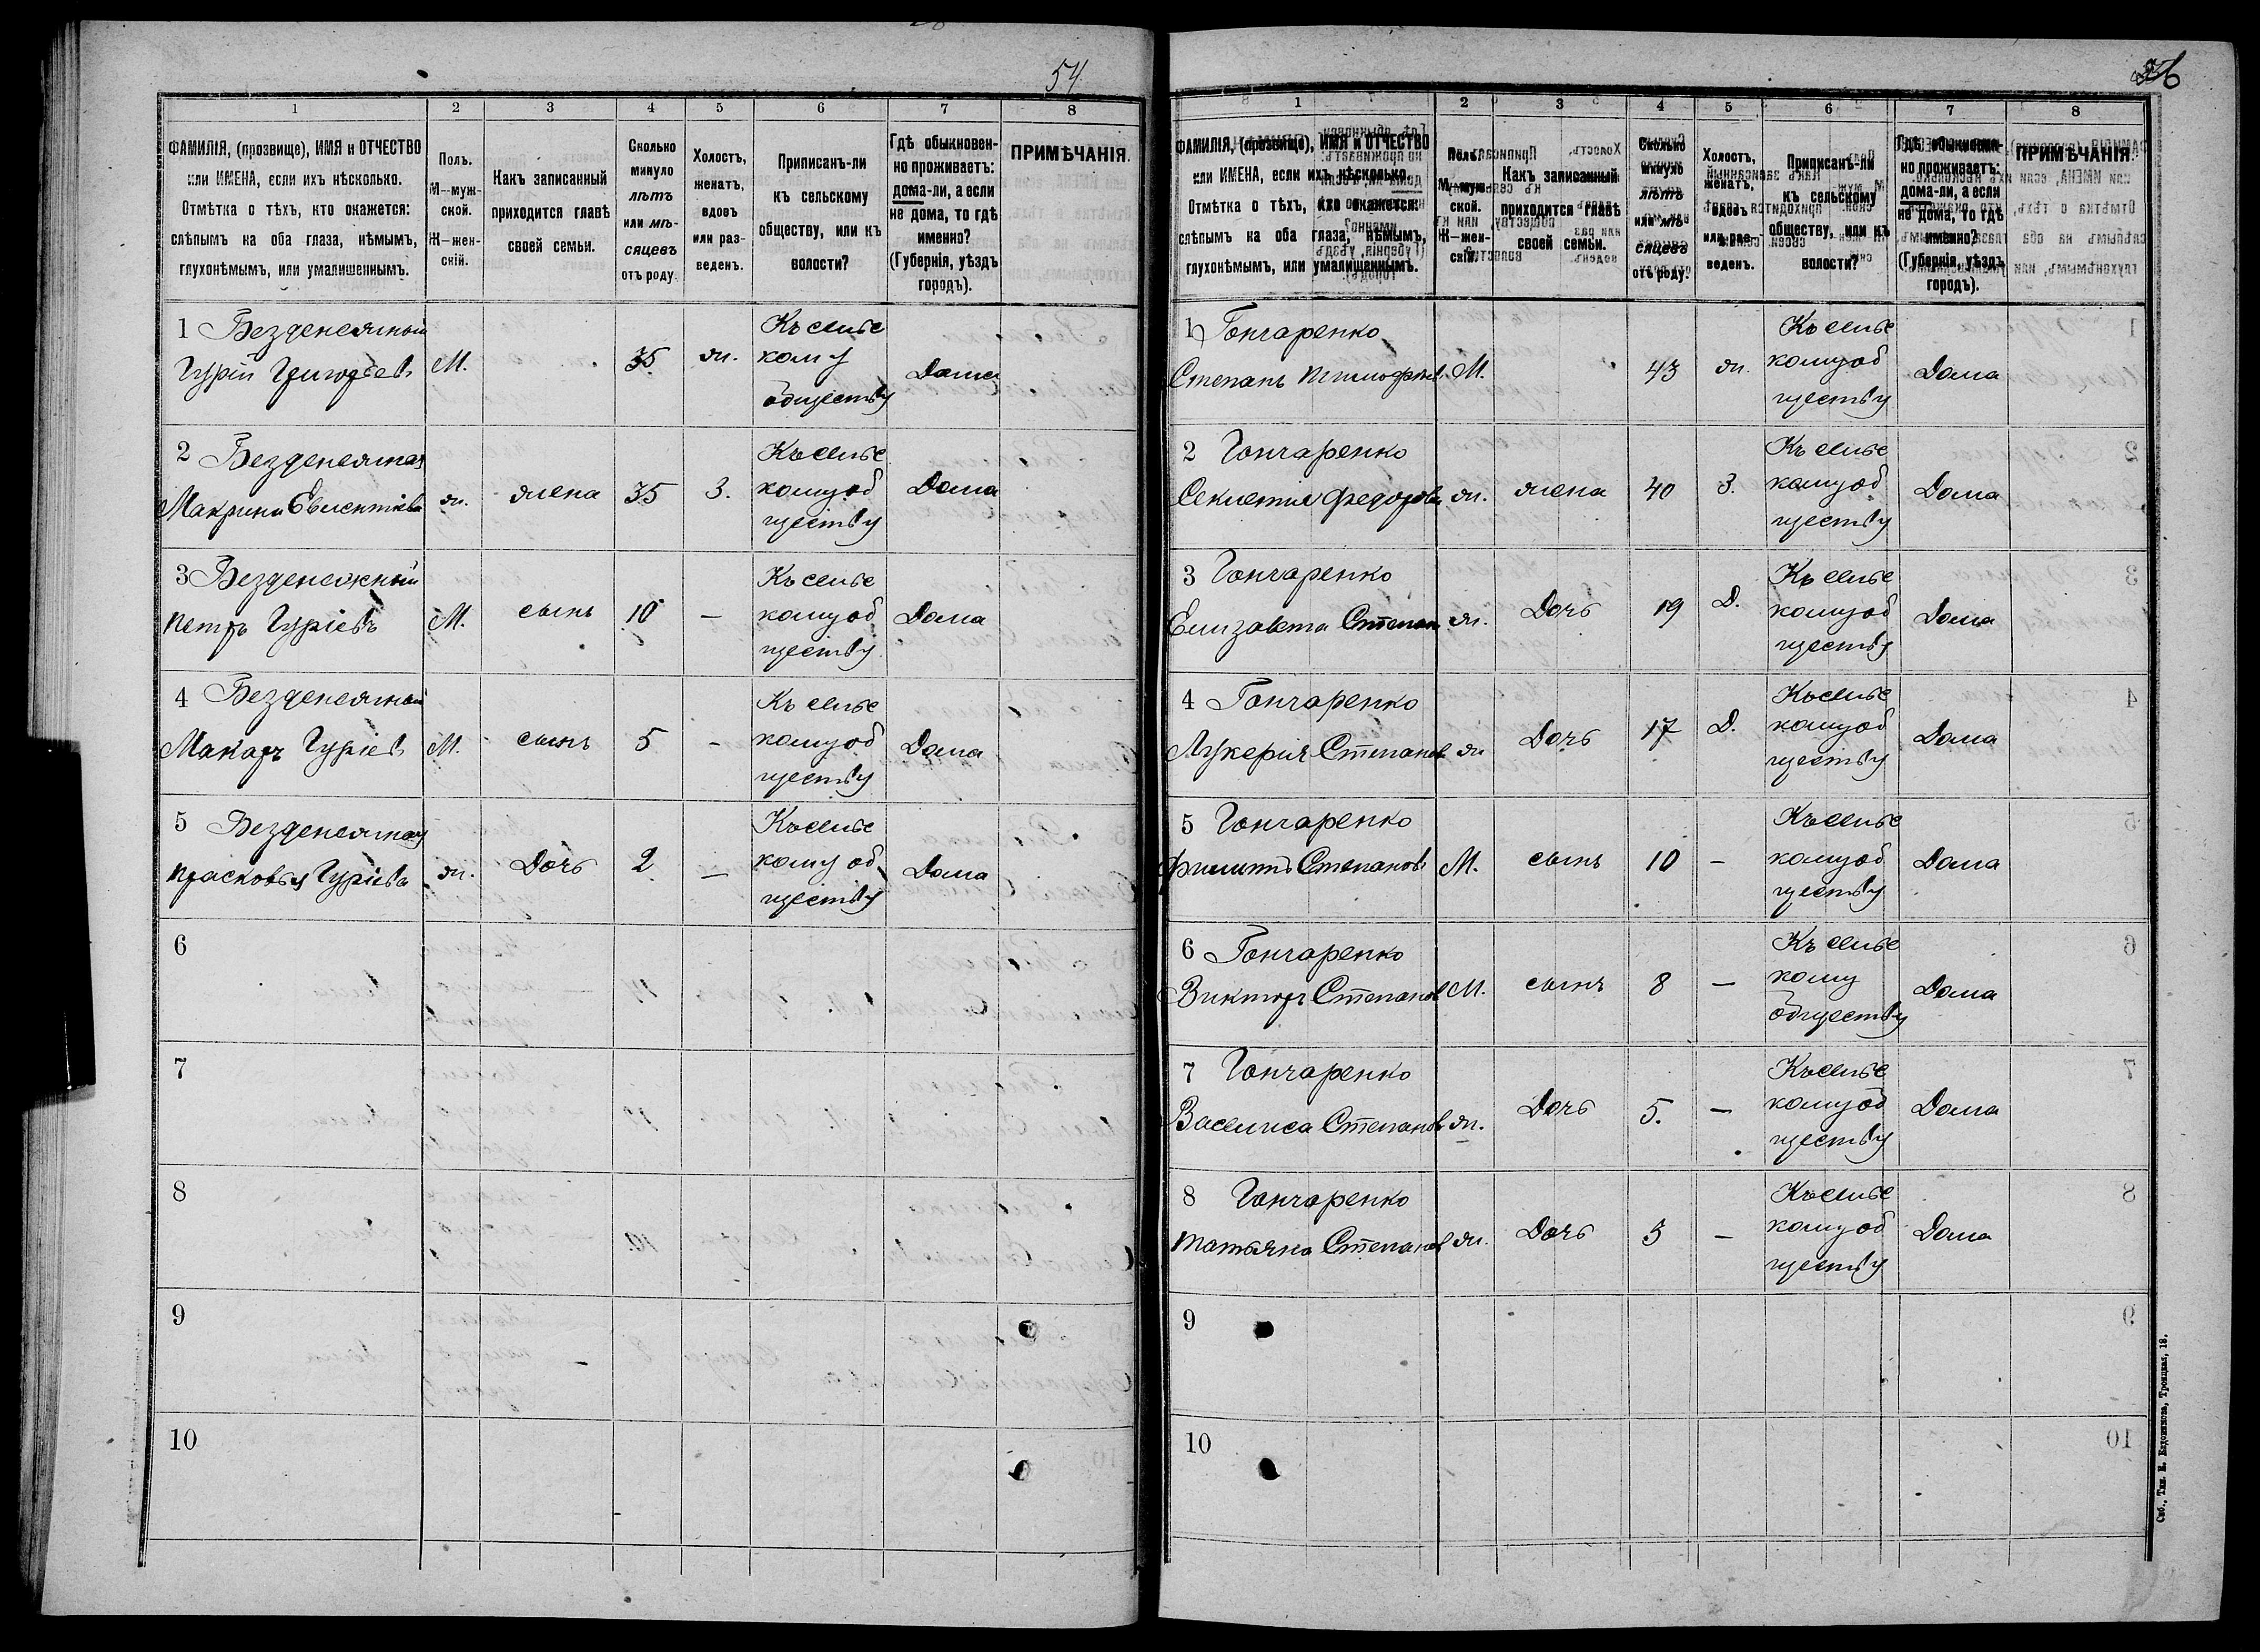 54
1 2 3 4 5 6 7 8
ФАМИЛІЯ, (прозвище), ИМЯ и ОТЧЕСТВО
или ИМЕНА, если ихъ нѣсколько.
Отмѣтка о тѣхъ, кто окажется:
слѣпымъ на оба глаза, нѣмымъ,
глухонѣмымъ, или умалишеннымъ.
Полъ.
М—муж-
ской.
Ж—жен-
скій.
Какъ записанный
приходится главѣ
своей семьи.
Сколько
минуло
лѣтъ
или мѣ-
сяцевъ
отъ роду.
Холостъ,
женатъ,
вдовъ
или раз-
веденъ.
Приписанъ-ли
къ сельскому
обществу, или къ
волости?
Гдѣ обыкновен-
но проживаетъ:
дома-ли, а если
не дома, то гдѣ
именно?
(Губернія, уѣздъ
городъ).
ПРИМѢЧАНІЯ.
1 Безденежный
Гурій Григорьевъ
М.
35
ж.
Къ сельс
кому
обществу
Дома
2 Безденежная
Макрина
ж.
жена
35
З.
Къ сельс
кому об
ществу
Дома
3 Безденежный
Петръ Гуріевъ
М.
сынъ
10
—
Къ сельс
кому об
ществу
Дома
4 Безденежный
Макаръ Гуріевъ
М.
сынъ
5
—
Къ сельс
кому об
ществу
Дома
5 Безденежная
Прасковья Гуріева
ж.
Дочь
2
—
Къ сельс
кому об
ществу
Дома
6
7
8
9
10
1 2 3 4 5 6 7 8
ФАМИЛІЯ, (прозвище), ИМЯ и ОТЧЕСТВО
или ИМЕНА, если ихъ нѣсколько.
Отмѣтка о тѣхъ, кто окажется:
слѣпымъ на оба глаза, нѣмымъ,
глухонѣмымъ, или умалишеннымъ.
Полъ.
М—муж-
ской.
Ж—жен-
скій.
Какъ записанный
приходится главѣ
своей семьи.
Сколько
минуло
лѣтъ
или мѣ-
сяцевъ
отъ роду.
Холостъ,
женатъ,
вдовъ
или раз-
веденъ.
Приписанъ-ли
къ сельскому
обществу, или къ
волости?
Гдѣ обыкновен-
но проживаетъ:
дома-ли, а если
не дома, то гдѣ
именно?
(Губернія, уѣздъ
городъ).
ПРИМѢЧАНІЯ.
1 Гончаренко
Степанъ Тимофеев.
М.
43
ж.
Къ сельс
кому об
ществу
Дома
2 Гончаренко
Секлетія Федорова
ж.
жена
40
З.
Къ сельс
кому об
ществу
Дома
3 Гончаренко
Елизавета Степан
ж.
Дочь
19
Д.
Къ сельс
кому об
ществу
Дома
4 Гончаренко
Лукерія Степанов
ж
Дочь
17
Д.
Къ сельс
кому об
ществу
Дома
5 Гончаренко
Филиппъ Степановъ
М.
сынъ
10
—
Къ сельс
кому об
ществу
Дома
6 Гончаренко
Викторъ Степанов
М.
сынъ
8
—
Къ сельс
кому
обществу
Дома
7 Гончаренко
Василиса Степанов
ж.
Дочь
5.
—
Къ сельс
кому об
ществу
Дома
8 Гончаренко
Татьяна Степанов
ж.
Дочь
3
—
Къ сельс
кому об
ществу
Дома
9
10